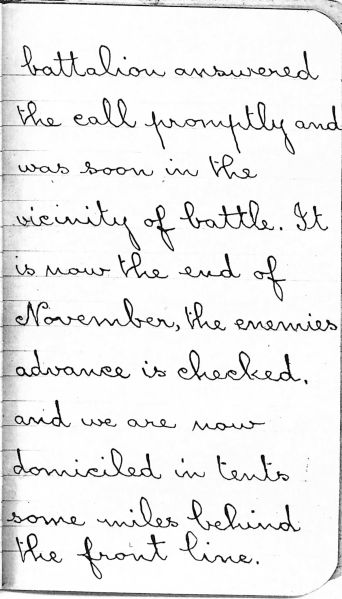 battalion answered
the call promptly and
was soon in the
vicinity of battle. It
is now the end of
November, the enemies
advance is checked.
and we are now
domiciled in tents
some miles behind
the front line.